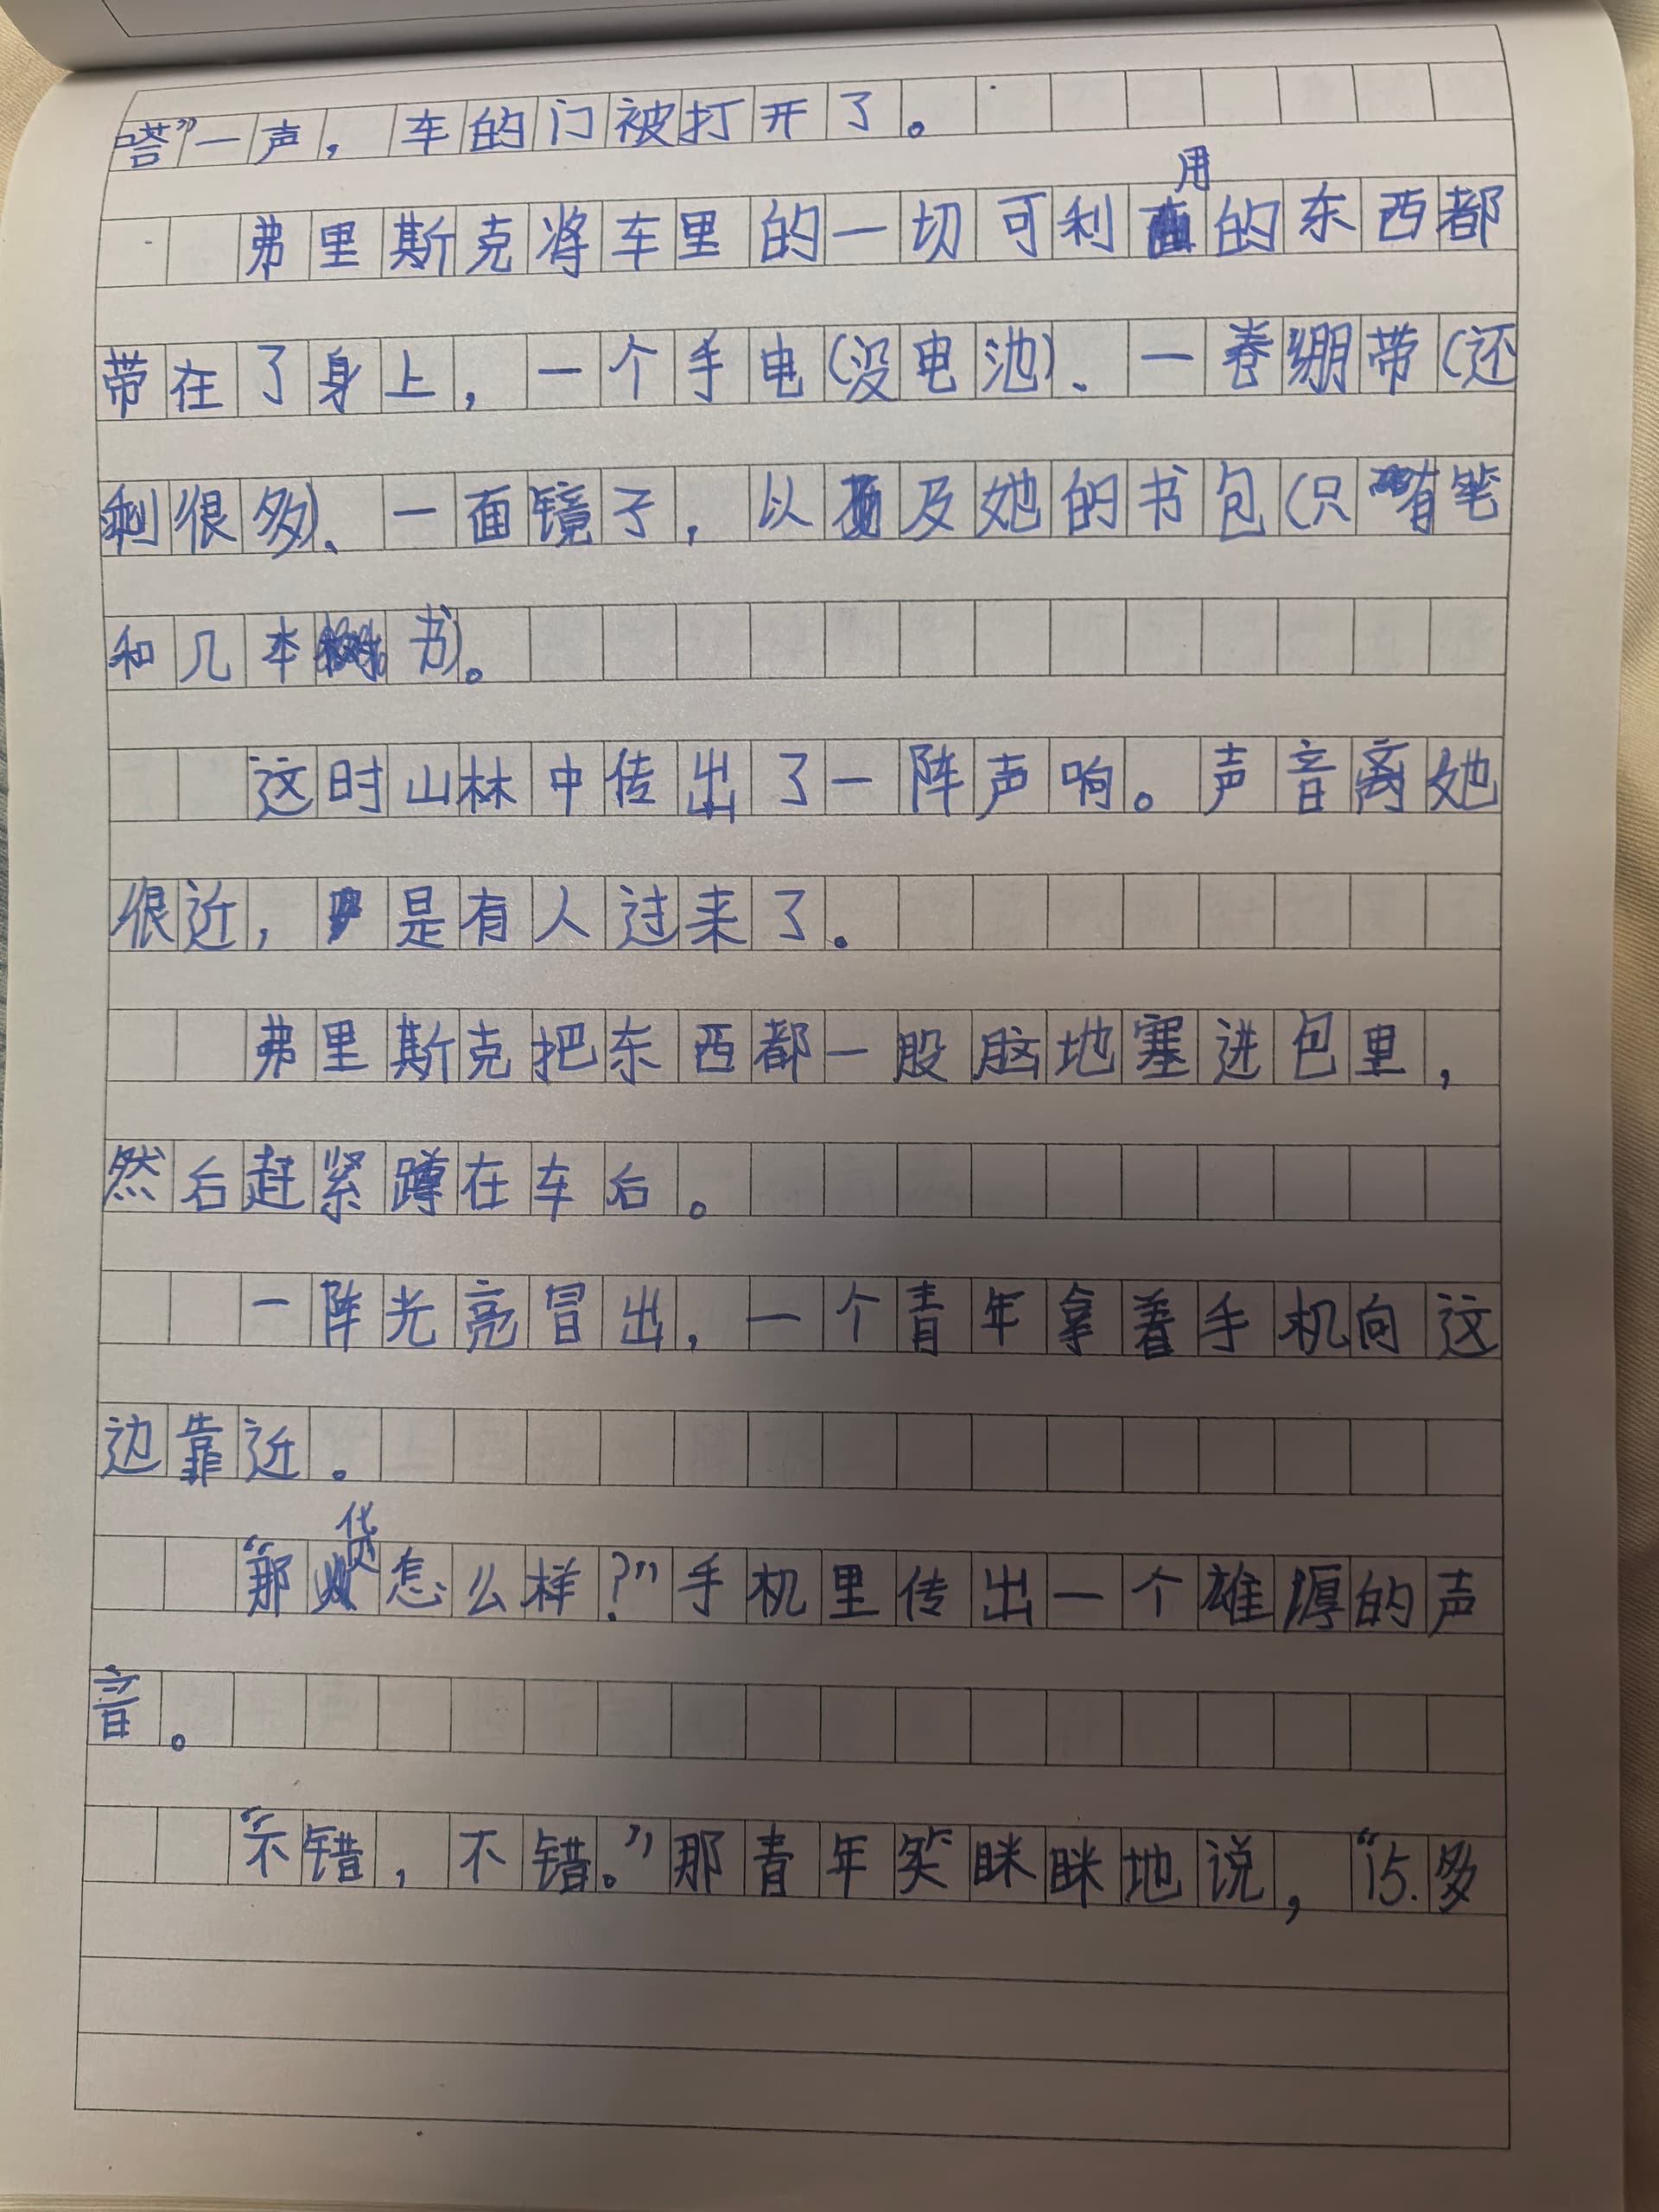 嗒”一声，车的门被打开了。
弗里斯克将车里的一切可利用的东西都
带在了身上，一个手电(没电池)、一卷绷带(还
剩很多)、一面镜子，以及她的书包(只有笔
和几本书)。
这时山林中传出了一阵声响。声音离她
很近，是有人过来了。
弗里斯克把东西都一股脑地塞进包里，
然后赶紧蹲在车后。
一阵光亮冒出，一个青年拿着手机向这
边靠近。
“那货怎么样？”手机里传出一个雄厚的声
音。
“不错，不错。”那青年笑眯眯地说，“15.多